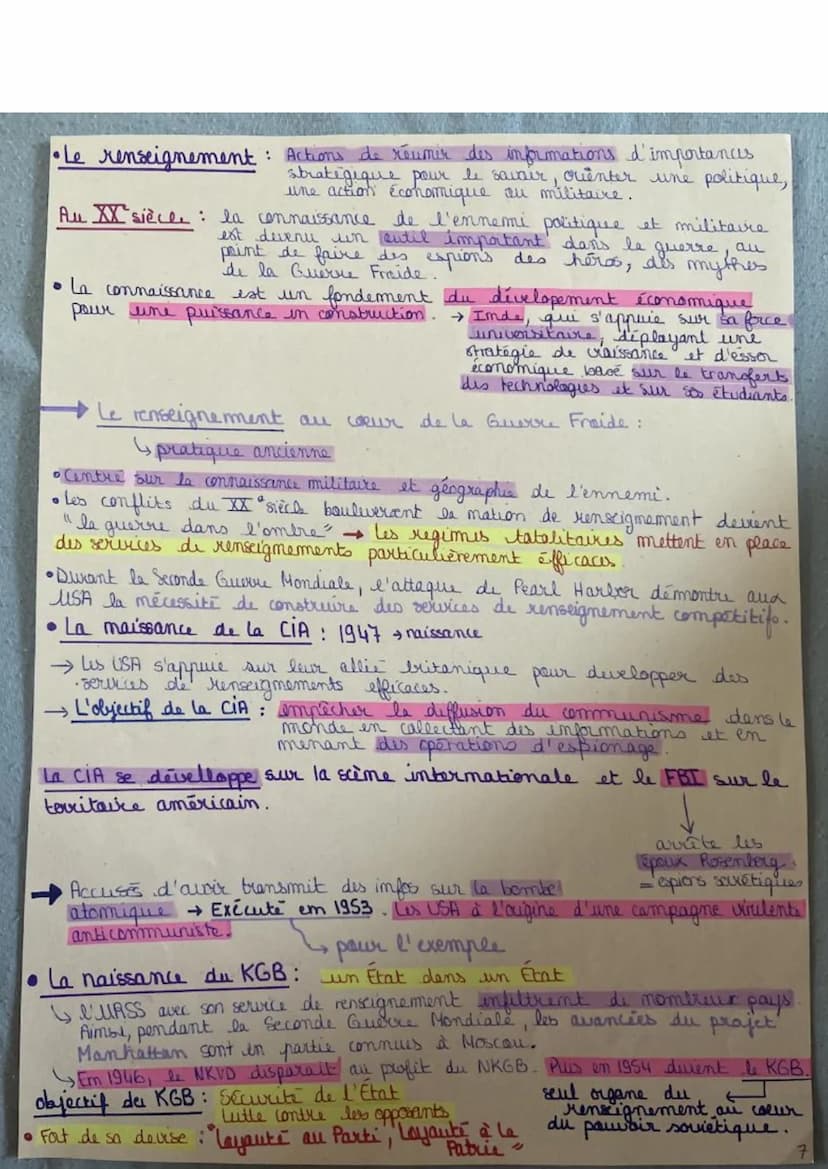 • Le renseignement : Actions de réunir des informations d'importances
stratégique pour le savoir, orienter une politique,
une action économique ou militaire.
Au XXe siècle : la connaissance de l'ennemi politique et militaire
est devenu un outil important dans la guerre, au
point de faire des espions des héros, des mythes
de la Guerre Froide.
• La connaissance est un fondement du dévelopement économique
pour une puissance en construction. → Inde, qui s'appuie sur sa force
universitaire, déployant une
stratégie de croissance et d'essor
économique basé sur le transferts
des technologies et sur ses étudiants.
→ Le renseignement au cœur de la Guerre Froide :
↳ pratique ancienne
• Centré sur la connaissance militaire et géographie de l'ennemi.
• Les conflits du XXe siècle bouleversent la notion de renseignement devient
"la guerre dans l'ombre" → les regimes totalitaires mettent en place
des services de renseignements particulièrement efficaces.
• Durant la Seconde Guerre Mondiale, l'attaque de Pearl Harbor démontre aux
USA la nécessité de construire des services de renseignement compétitifs.
• La naissance de la CIA : 1947 → naissance
→ Les USA s'appuie sur leur allié britanique pour developper des
services de renseignements efficaces.
→ L'objectif de la CIA : empêcher la diffusion du communisme dans le
monde en collectant des informations et en
menant des opérations d'espionage.
La CIA se dévelloppe sur la scène internationale et le FBI sur le
territoire américain.
↓
arrête les
époux Rosenberg.
= espions soviétiques
→ Accusés d'avoir transmit des infos sur la bombe
atomique → Exécuté em 1953. Les USA à l'origine d'une campagne virulente
anticommuniste.
↳ pour l'exemple
• La naissance du KGB : un État dans un État
↳ l'URSS avec son service de renseignement infiltrent de nombreux pays.
Ainsi, pendant la Seconde Guerre Mondiale, les avancées du projet
Manhattan sont en partie connues à Moscou.
↳ En 1946, le NKVD disparait au profit du NKGB. Puis en 1954 devient le KGB.
objectif du KGB : Sécurité de l'État
Lutte contre les opposants
seul organe du
renseignement au cœur
du pouvoir soviétique.
• Fort de sa devise : "Loyauté au Parti, Loyauté à la
Patrie"
7